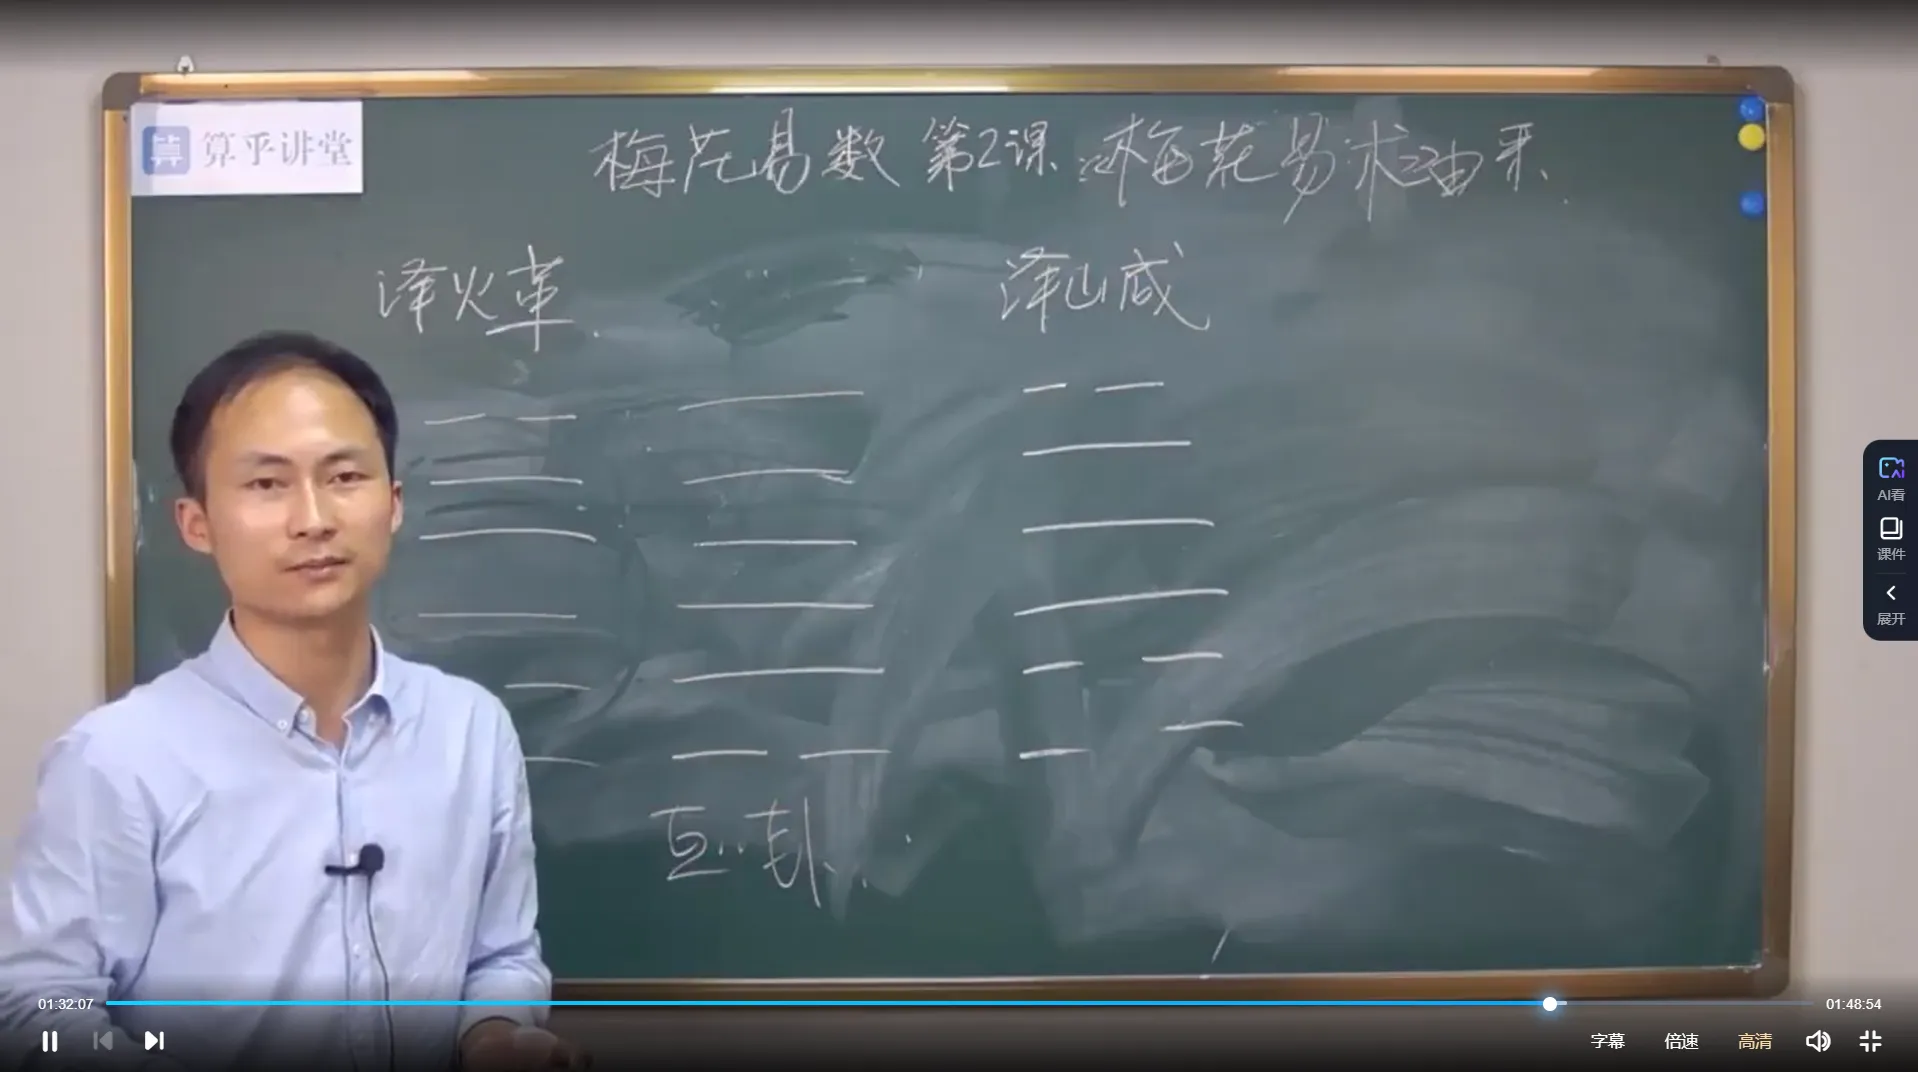 算 算乎讲堂
梅花易数 第2课:梅花易术之由来
泽火革.
泽山咸
互卦
AI看
课件
展开
01:32:07
01:48:54
字幕 倍速 高清